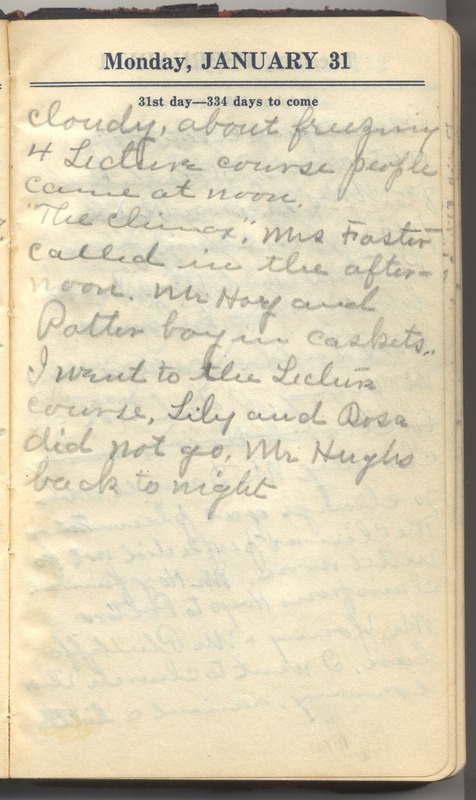 Monday, JANUARY 31
31st day—334 days to come
cloudy, about freezing
4 Lecture course people
came at noon.
"The Climax", Mrs Foster
called in the after-
noon. Mr Hoy and
Potter boy in caskets.
I went to the Lecture
course, Lily and Rosa
did not go, Mr Hughs
back to night